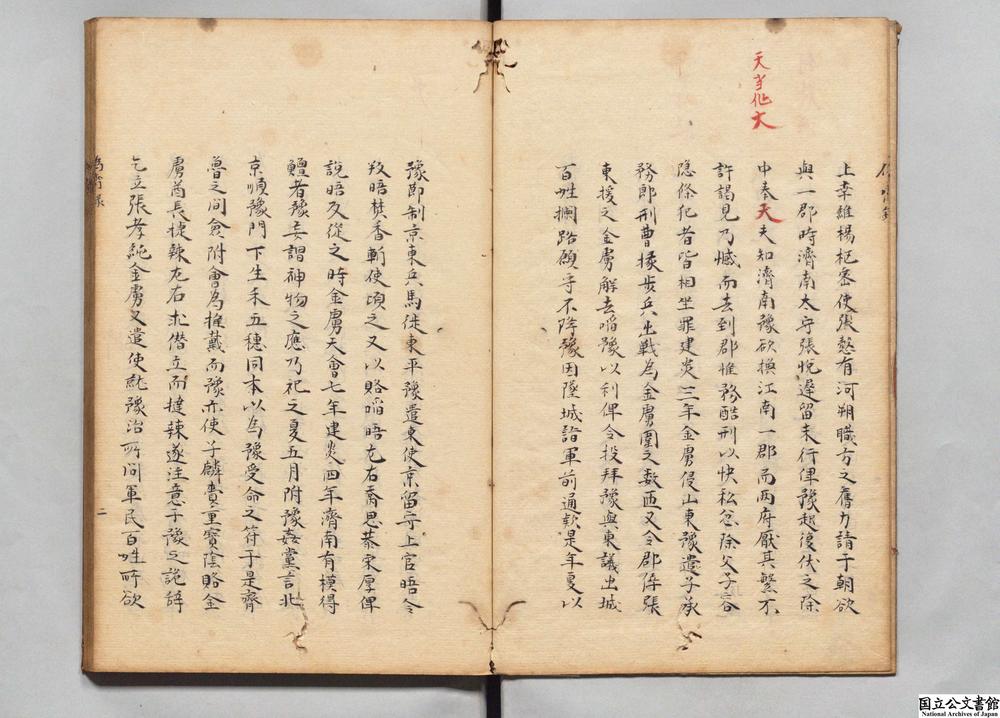 天当作大
上幸維楊枢密使張慤有河朔職方之舊力請于朝欲
與一郡時濟南太守張悅遲留未行俾豫起復伏之除
中奉天夫知濟南豫欲換江南一郡而両府厭其繁不
許謁見乃憾而去到郡惟務酷刑以快私忿除父子容
隠條犯者皆相坐罪建炎三年金虜侵山東豫遣子承
務郎刑曹掾步兵出戰為金虜圍之数匝又令郡倅張
東援之金虜解去啗豫以利俾令投拜豫與東議出城
百姓攔路願守不降豫因墜城詣軍前通款是年夏以
豫節制京東兵馬徙東平豫遣東使京留守上官晤令
叛晤焚香斬使頃之又以賂啗晤左右喬思恭宋厚俾
說晤及從之時金虜天會七年建炎四年濟南有模得
鱣者豫妄謂神物之應乃祀之夏五月附豫姦黨言北
京順豫門下生禾五穗同本以為豫受命之符于是齊
魯之间僉附會為推戴而豫亦使子麟賫重寳陰賂金
虜酋長撻辣左右求僭立而撻辣遂注意于豫之詭辞
乞立張孝純金虜又遣使就豫治所问軍民百姓所欲
偽齊録
二
国立公文書館
National Archives of Japan